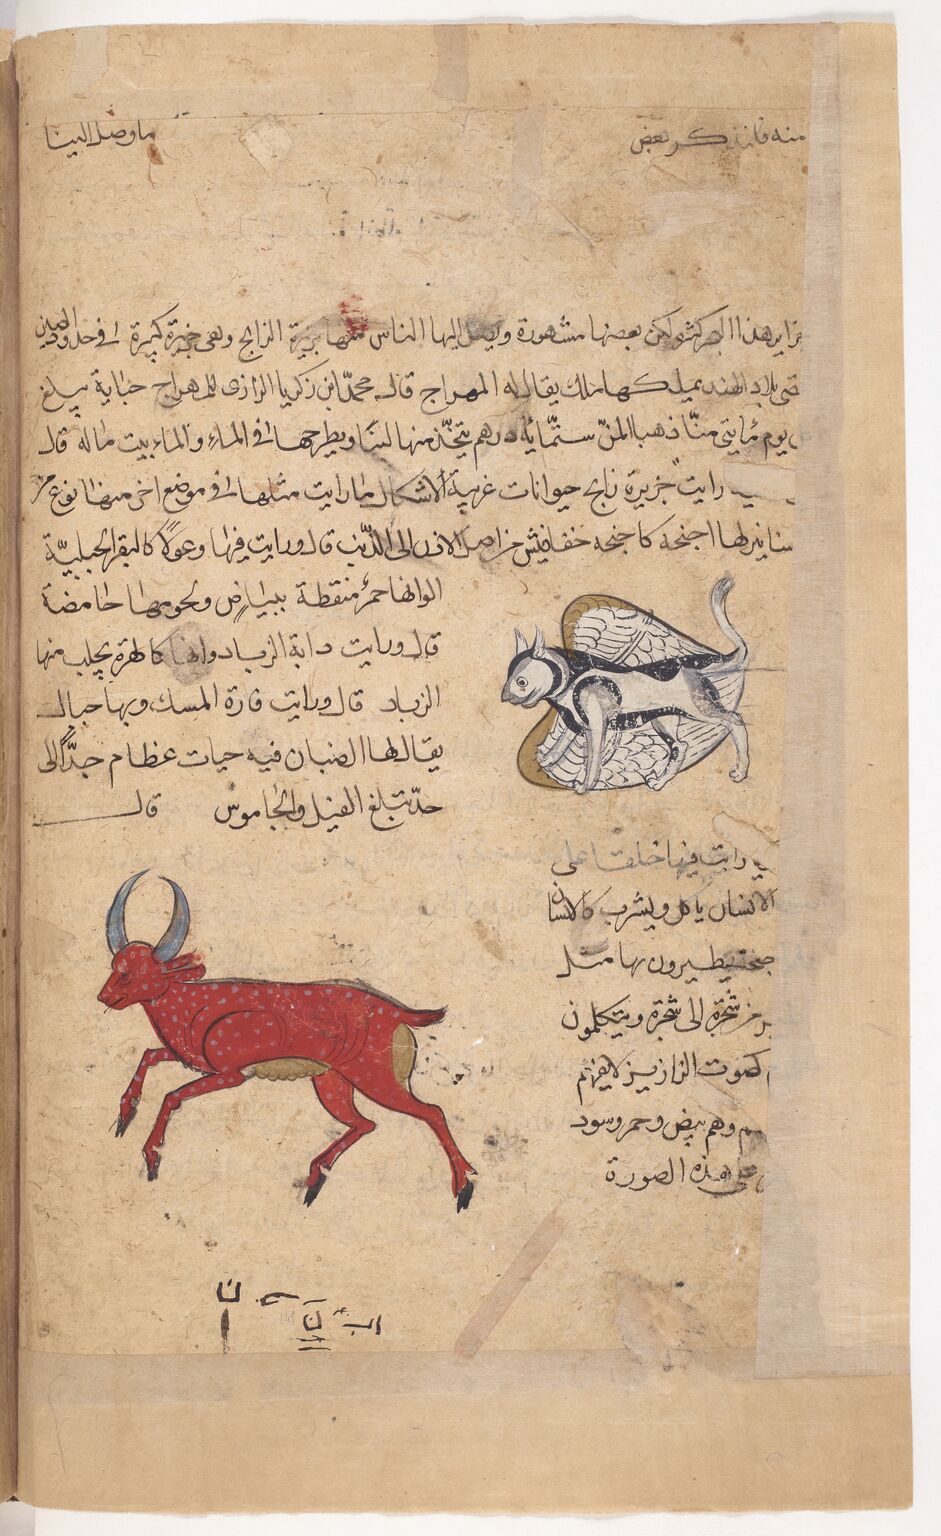 منه فلنذكر بعض ما وصل الينا
جزاير هذا البحر كثيرة لكن بعضها مشهورة ويصل اليها الناس منها جزيرة الزابج وهى جزيرة كبيرة فى حدود الصين
اقصى بلاد الهند يملكها ملك يقال له المهراج قال محمّد ابن زكريا الرازى للمهراج جباية يبلغ
يوم مأيتى منّا ذهبا المنّ ستّمائة درهم يتّخذ منها لبنًا ويطرحها فى الماء والماء بيت ماله قال
رايت جزيرة زابج حيوانات غريبة الاشكال ما رايت مثلها فى موضع اخر منها نوع من
سنانير لها اجنحة كاجنحة خفافيش من اصل الاذن الى الذّنب قال ورايت فيها وعولًا كالبقر الجبليّة
الوانها حمر منقطة ببياض ولحومها حامضة
قال ورايت دابة الزباد وانها كالهرة يجلب منها
الزباد قال ورايت فارة المسك وبها جبال
يقال لها النصبان فيه حيات عظام جدًّا الى
حدّ تبلع الفيل والجاموس قال
رايت فيها خلقا على
الانسان ياكل ويشرب كالانسان
اجنحة يطيرون بها مثل
من شجرة الى شجرة ويتكلمون
كصوت الزازير لا يفهم
وهم بيض وحمر وسود
على هذه الصورة